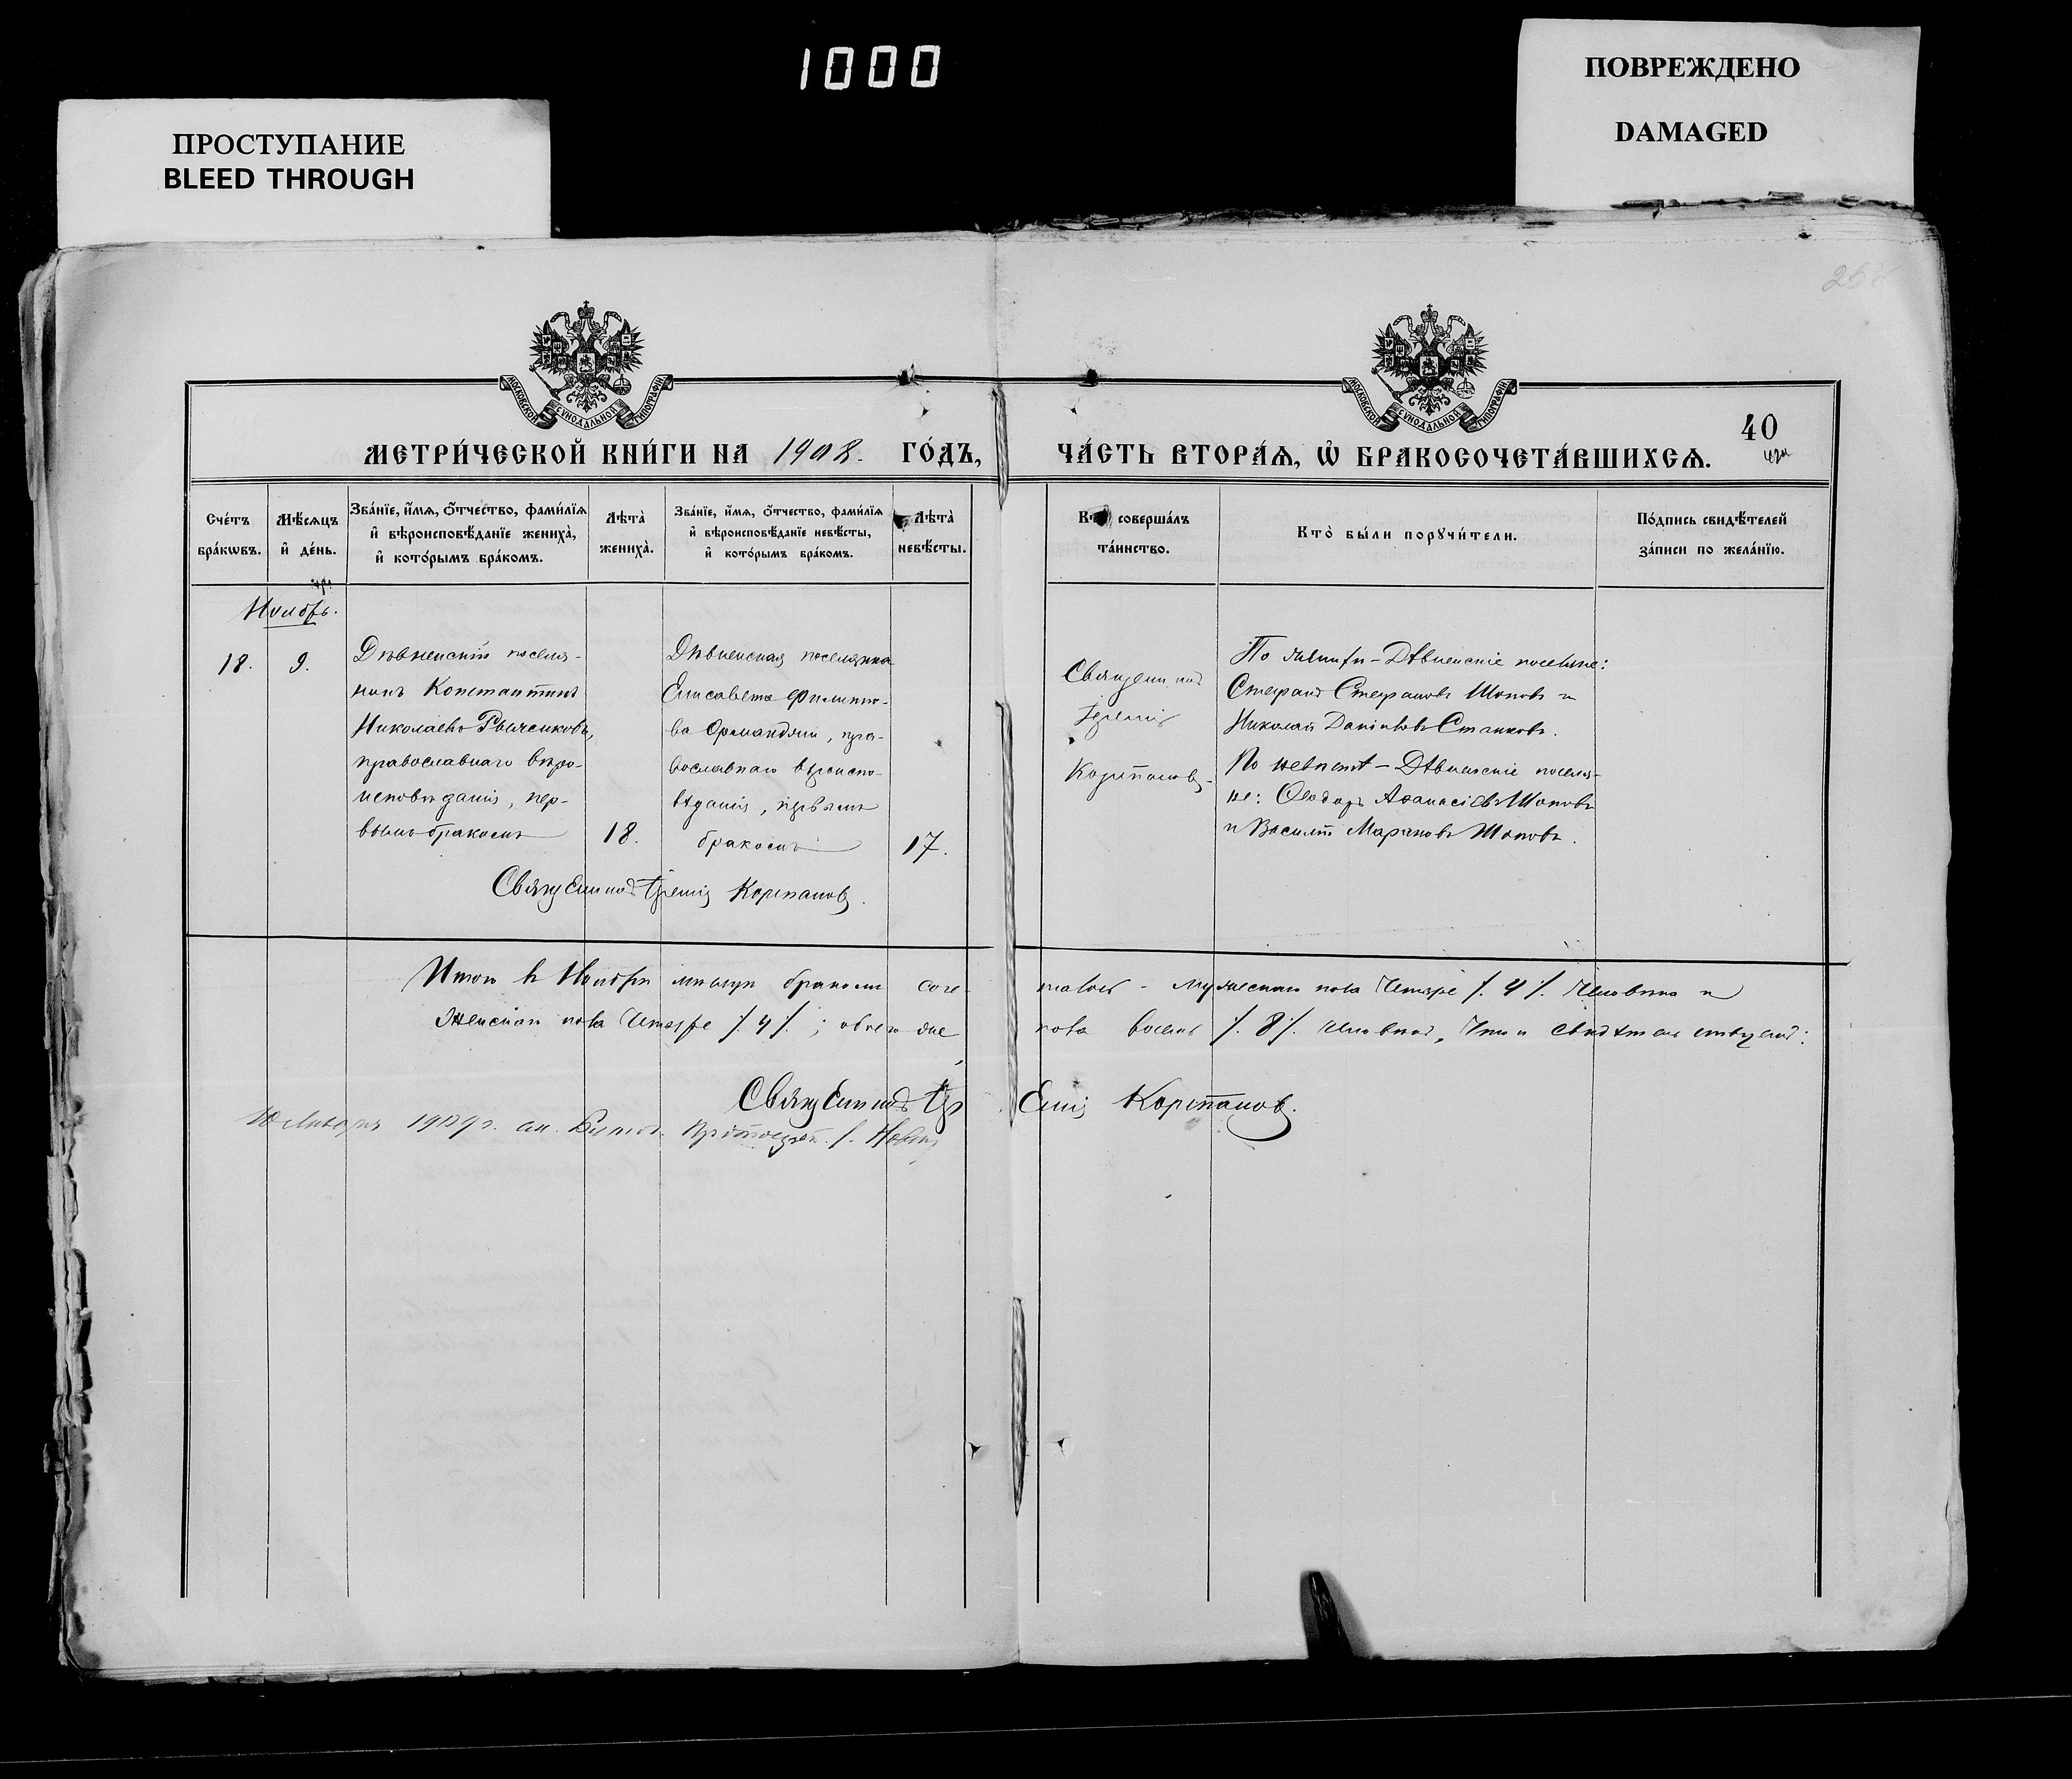 1000
ПРОСТУПАНИЕ
BLEED THROUGH
ПОВРЕЖДЕНО
DAMAGED
МОСКОВСКОЙ СѴНОДАЛЬНОЙ ТИПОГРАФІИ
МОСКОВСКОЙ СѴНОДАЛЬНОЙ ТИПОГРАФІИ
40
МЕТРИ́ЧЕСКОЙ КНИ́ГИ НА 1908. ГО́ДЪ,
ЧА́СТЬ ВТОРА́Я, Ѡ БРАКОСОЧЕТА́ВШИХСЯ.
Сче́тъ
бра́кѡвъ.
Мѣ́сяцъ
и҆ де́нь.
Зва́нїе, и҆́мя, ѻ҆́тчество, фами́лїя
и҆ вѣроисповѣ́данїе жениха̀,
и҆ кото́рымъ бра́комъ.
Лѣта̀
жениха̀.
Зва́нїе, и҆́мя, ѻ҆́тчество, фами́лїя
и҆ вѣроисповѣ́данїе невѣ́сты,
и҆ кото́рымъ бра́комъ.
Лѣта̀
невѣ́сты.
Кто̀ соверша́лъ
та́инство.
Кто̀ бы́ли порꙋчи́тели.
По́дпись свидѣ́телей
за́писи по жела́нїю.
Ноябрь.
18.
9.
Дѣвненскій поселя-
нинъ Константинъ
Николаевъ
православнаго вѣро-
исповѣданія, пер-
вымъ бракомъ
18.
Дѣвненская поселянка
Елисавета Филиппо-
ва Орманджи, пра-
вославнаго вѣроиспо-
вѣданія, первымъ
бракомъ
17.
Священникъ
Іеремія
Корпановъ
По женихѣ – Дѣвненскіе поселяне:
Стефанъ Стефановъ Шоповъ и
Николай Даніиловъ Станковъ.
По невѣстѣ – Дѣвненскіе поселя-
не: Ѳеодоръ Аѳанасіевъ Шоповъ
и Василій Мариновъ Шоповъ.
Священникъ Іеремія Корпановъ.
Итого въ Ноябрѣ мѣсяцѣ бракомъ соче-
талось – мужескаго пола четыре /. 4 /. человѣка и
женскаго пола четыре /. 4 /.; обоего же
пола восемь /. 8 /. человѣкъ, что и свидѣтельствуемъ:
Священникъ Іеремія Корпановъ.
Января 1909 г.